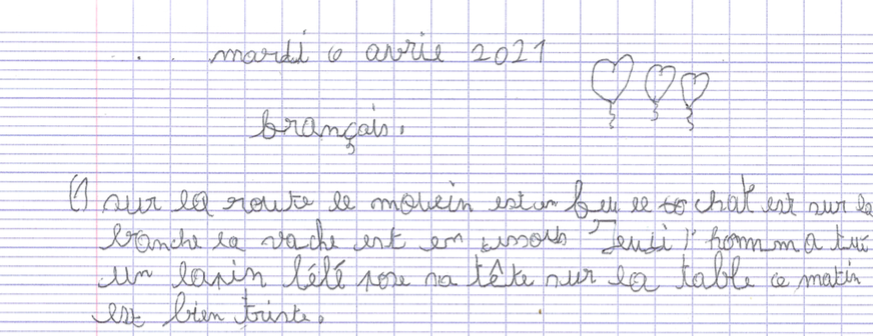 mardi 6 avrie 2021
français.
1) sur la route le moulein est en feu le chat est sur la
branche la vache est en dessous Jeudi l'homm m a tué
un lapin lélé pose sa tête sur la table ce matin
est bien triste.